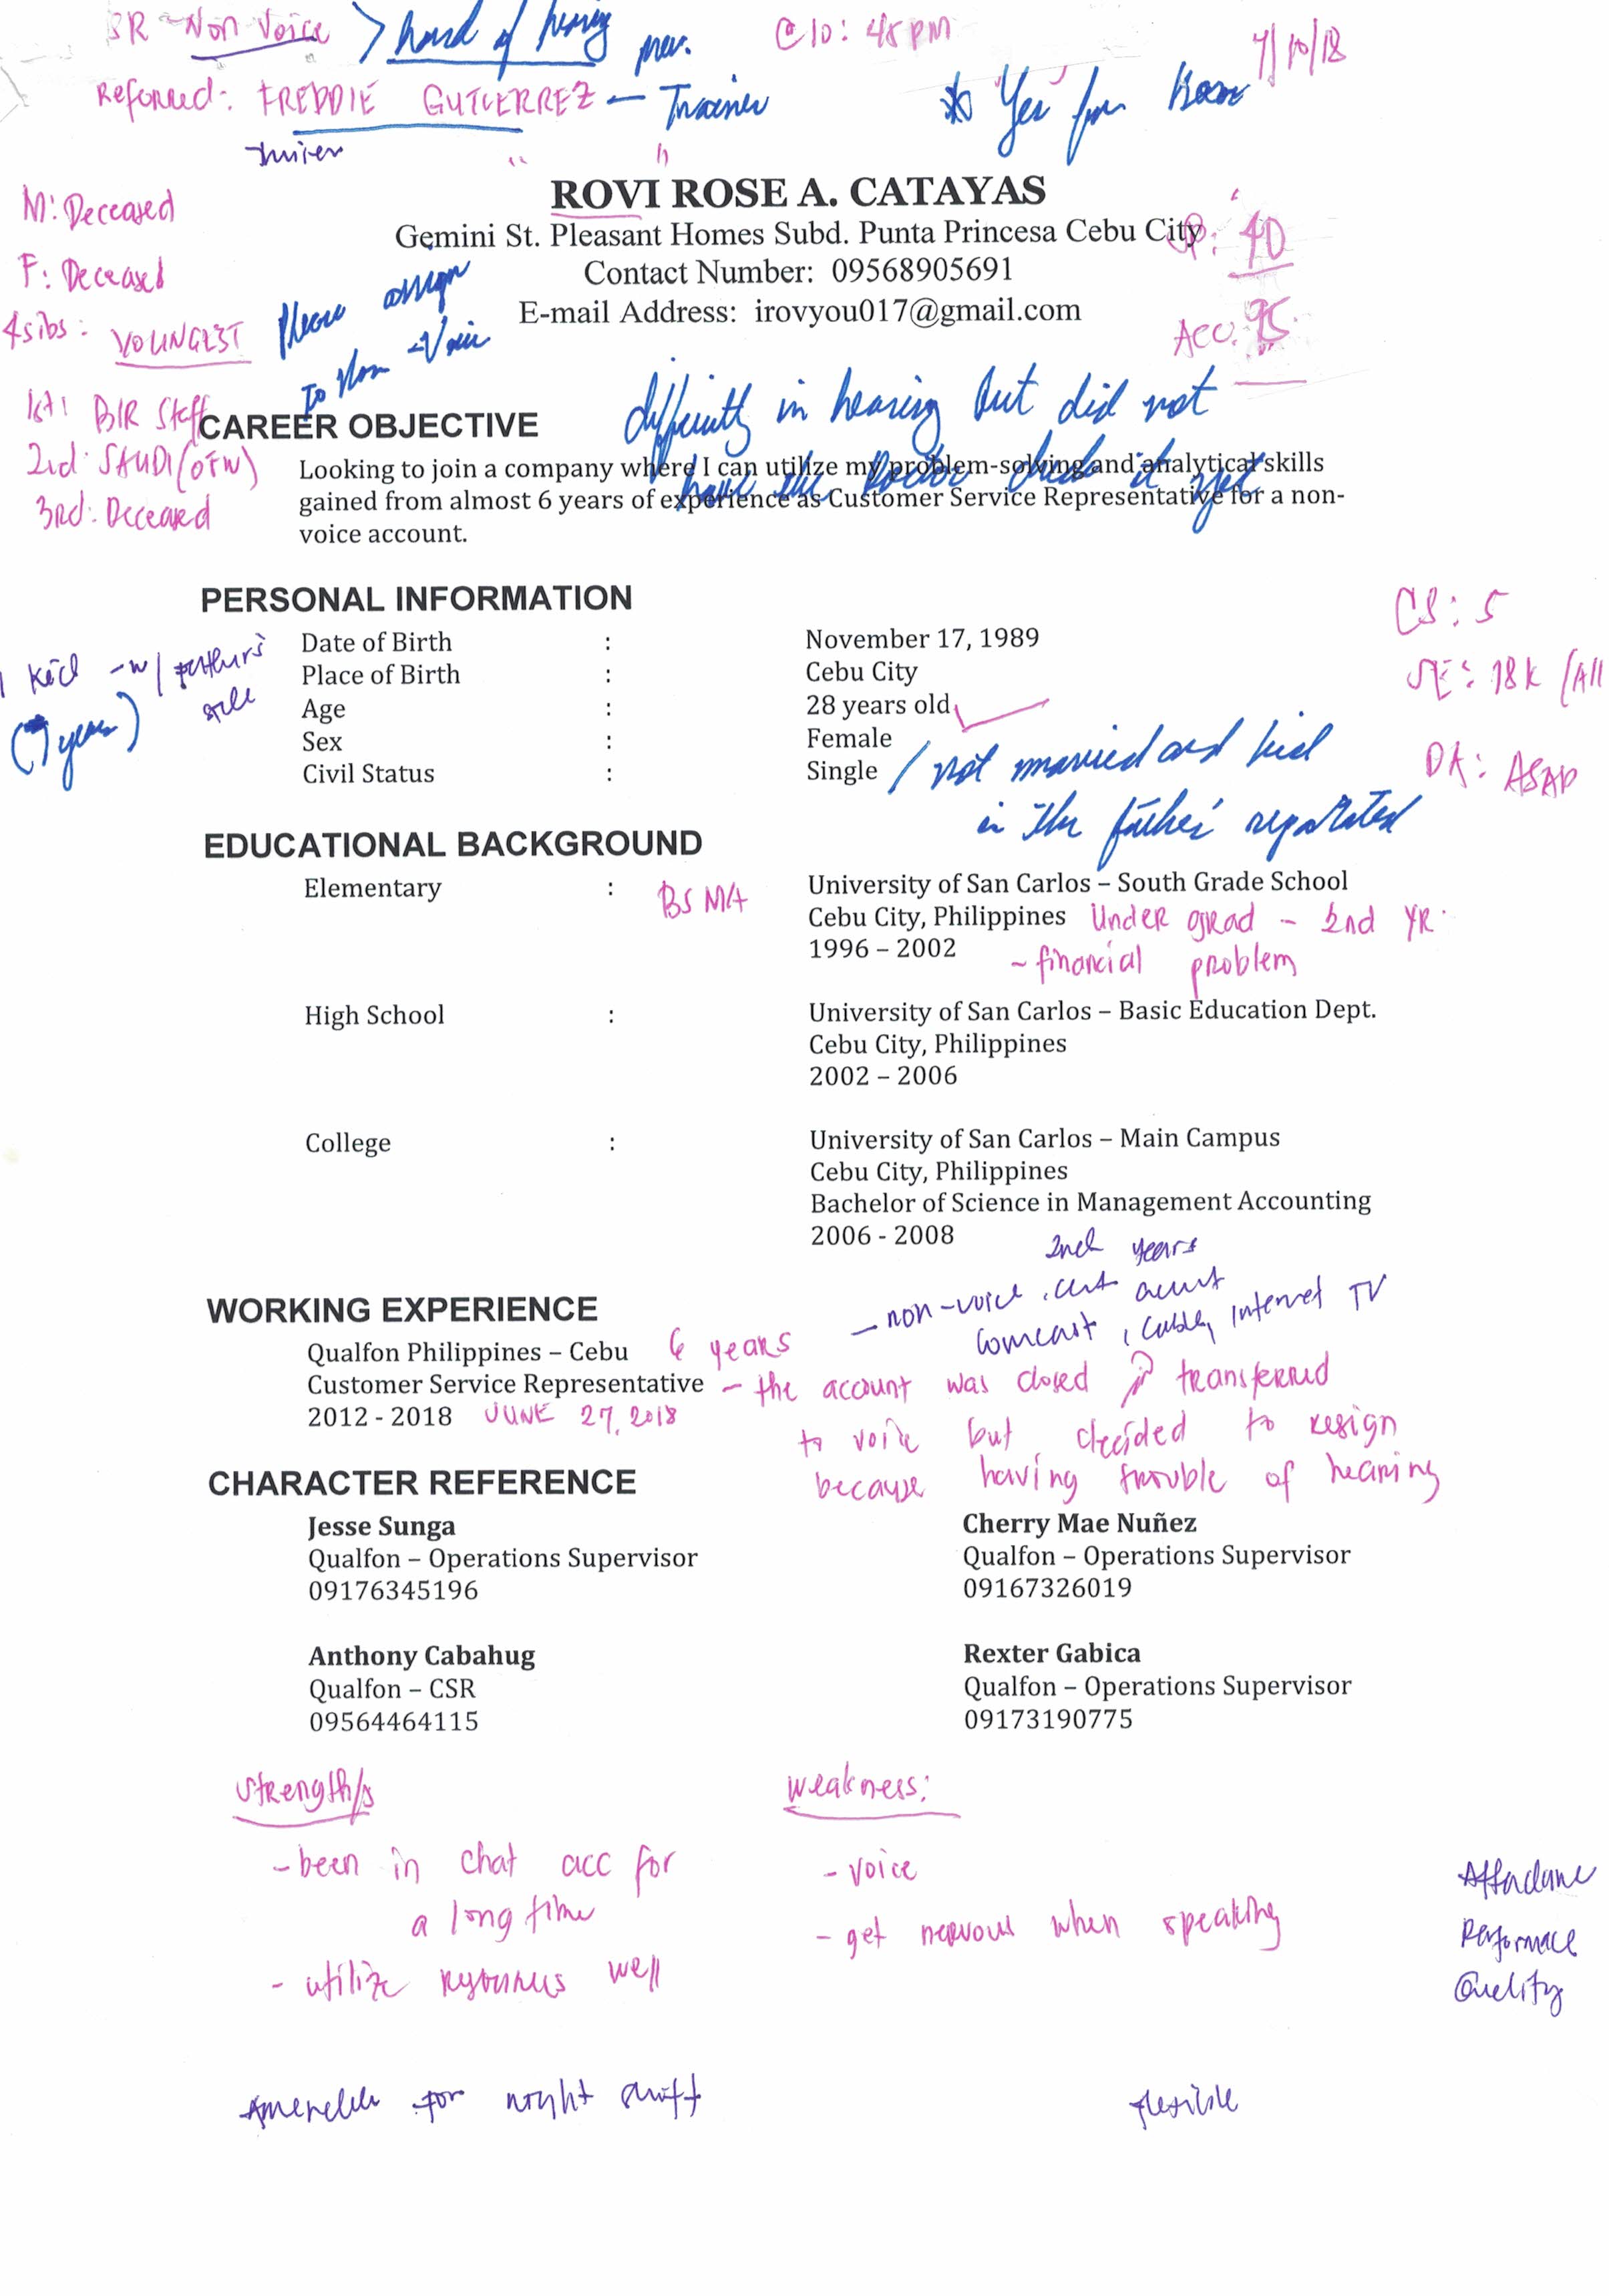 SR - Non Voice > hard of hearing prev. @ 10:45 PM 7/10/18
Referred: FREDDIE GUTIERREZ — Trainer
* Yes for
" "
ROVI ROSE A. CATAYAS
Gemini St. Pleasant Homes Subd. Punta Princesa Cebu City
Contact Number: 09568905691
E-mail Address: irovyou017@gmail.com
M: Deceased
F: Deceased
4 sibs: YOUNGEST
1st: BIR Staff
2nd: SAUDI (OFW)
3rd: Deceased
Please assign
to Non-Voice
: 40
Acc: 95
difficulty in hearing but did not
have the Doctor check it yet
CAREER OBJECTIVE
Looking to join a company where I can utilize my problem-solving and analytical skills
gained from almost 6 years of experience as Customer Service Representative for a non-
voice account.
PERSONAL INFORMATION
Date of Birth : November 17, 1989
Place of Birth : Cebu City
Age : 28 years old
Sex : Female
Civil Status : Single / not married and kid
in the father reputated
1 kid - w/ father's
side
(7 years)
CS: 5
SE: 18K /All
DA: ASAP
EDUCATIONAL BACKGROUND
Elementary : BSMA University of San Carlos – South Grade School
Cebu City, Philippines Under grad - 2nd YR.
1996 – 2002 - financial problem
High School : University of San Carlos – Basic Education Dept.
Cebu City, Philippines
2002 – 2006
College : University of San Carlos – Main Campus
Cebu City, Philippines
Bachelor of Science in Management Accounting
2006 - 2008
2nd years
WORKING EXPERIENCE
— non-voice, acunt
Comcast, Cable, internet TV
Qualfon Philippines – Cebu 6 years
Customer Service Representative - the account was closed transferred
2012 - 2018 JUNE 27, 2018 to voice but decided to resign
because having trouble of hearing
CHARACTER REFERENCE
Jesse Sunga
Qualfon – Operations Supervisor
09176345196
Cherry Mae Nuñez
Qualfon – Operations Supervisor
09167326019
Anthony Cabahug
Qualfon – CSR
09564464115
Rexter Gabica
Qualfon – Operations Supervisor
09173190775
Strength/s
- been in chat acc for
a long time
- utilize well
weakness:
- voice
- get nervous when speaking
Attendance
Performance
Quality
Amenable for night shift
flexible